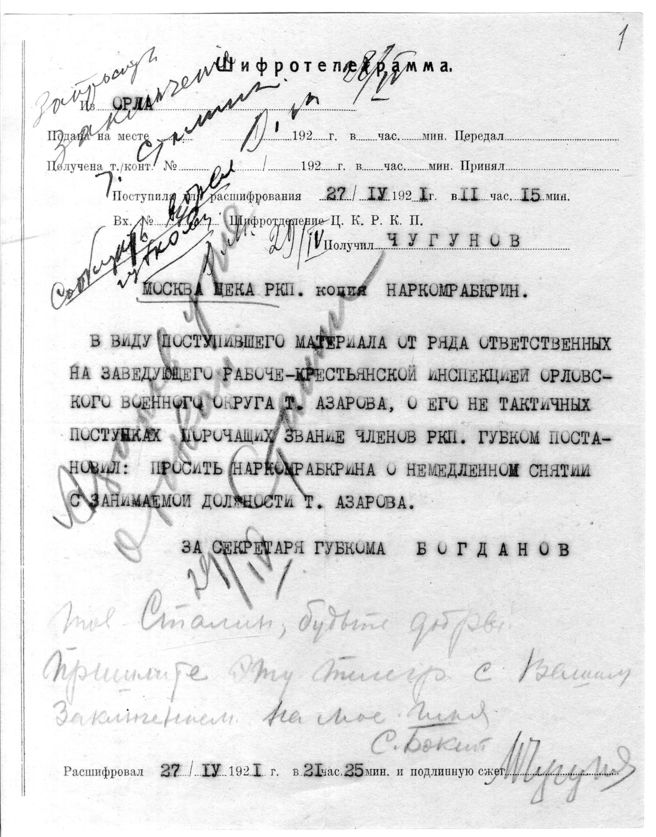 1
Шифротелеграмма.
28/IV
Запросить
заключение
т. Сталина.
Из ОРЛА
Подана на месте / 192 г. в час. мин. Передал
Получена т./конт. № / 192 г. в час. мин. Принял
Поступила для расшифрования 27/IV 1921 г. в 11 час. 15 мин.
Вх. № Шифротделение Ц. К. Р. К. П.
Сообщить
29/IV
Получил ЧУГУНОВ
МОСКВА ЦЕКА РКП. копия НАРКОМРАБКРИН.
В ВИДУ ПОСТУПИВШЕГО МАТЕРИАЛА ОТ РЯДА ОТВЕТСТВЕННЫХ
НА ЗАВЕДУЮЩЕГО РАБОЧЕ-КРЕСТЬЯНСКОЙ ИНСПЕКЦИЕЙ ОРЛОВС-
КОГО ВОЕННОГО ОКРУГА Т. АЗАРОВА, О ЕГО НЕ ТАКТИЧНЫХ
ПОСТУПКАХ ПОРОЧАЩИХ ЗВАНИЕ ЧЛЕНОВ РКП. ГУБКОМ ПОСТА-
НОВИЛ: ПРОСИТЬ НАРКОМРАБКРИНА О НЕМЕДЛЕННОМ СНЯТИИ
С ЗАНИМАЕМОЙ ДОЛЖНОСТИ Т. АЗАРОВА.
ЗА СЕКРЕТАРЯ ГУБКОМА БОГДАНОВ
Сталин
29/IV
тов Сталин, будьте добры
пришлите эту телегр с Вашим
заключением на мое имя
С. Бокий
Расшифровал 27/IV 1921 г. в 21 час. 25 мин. и подлинную сжег Чугунов